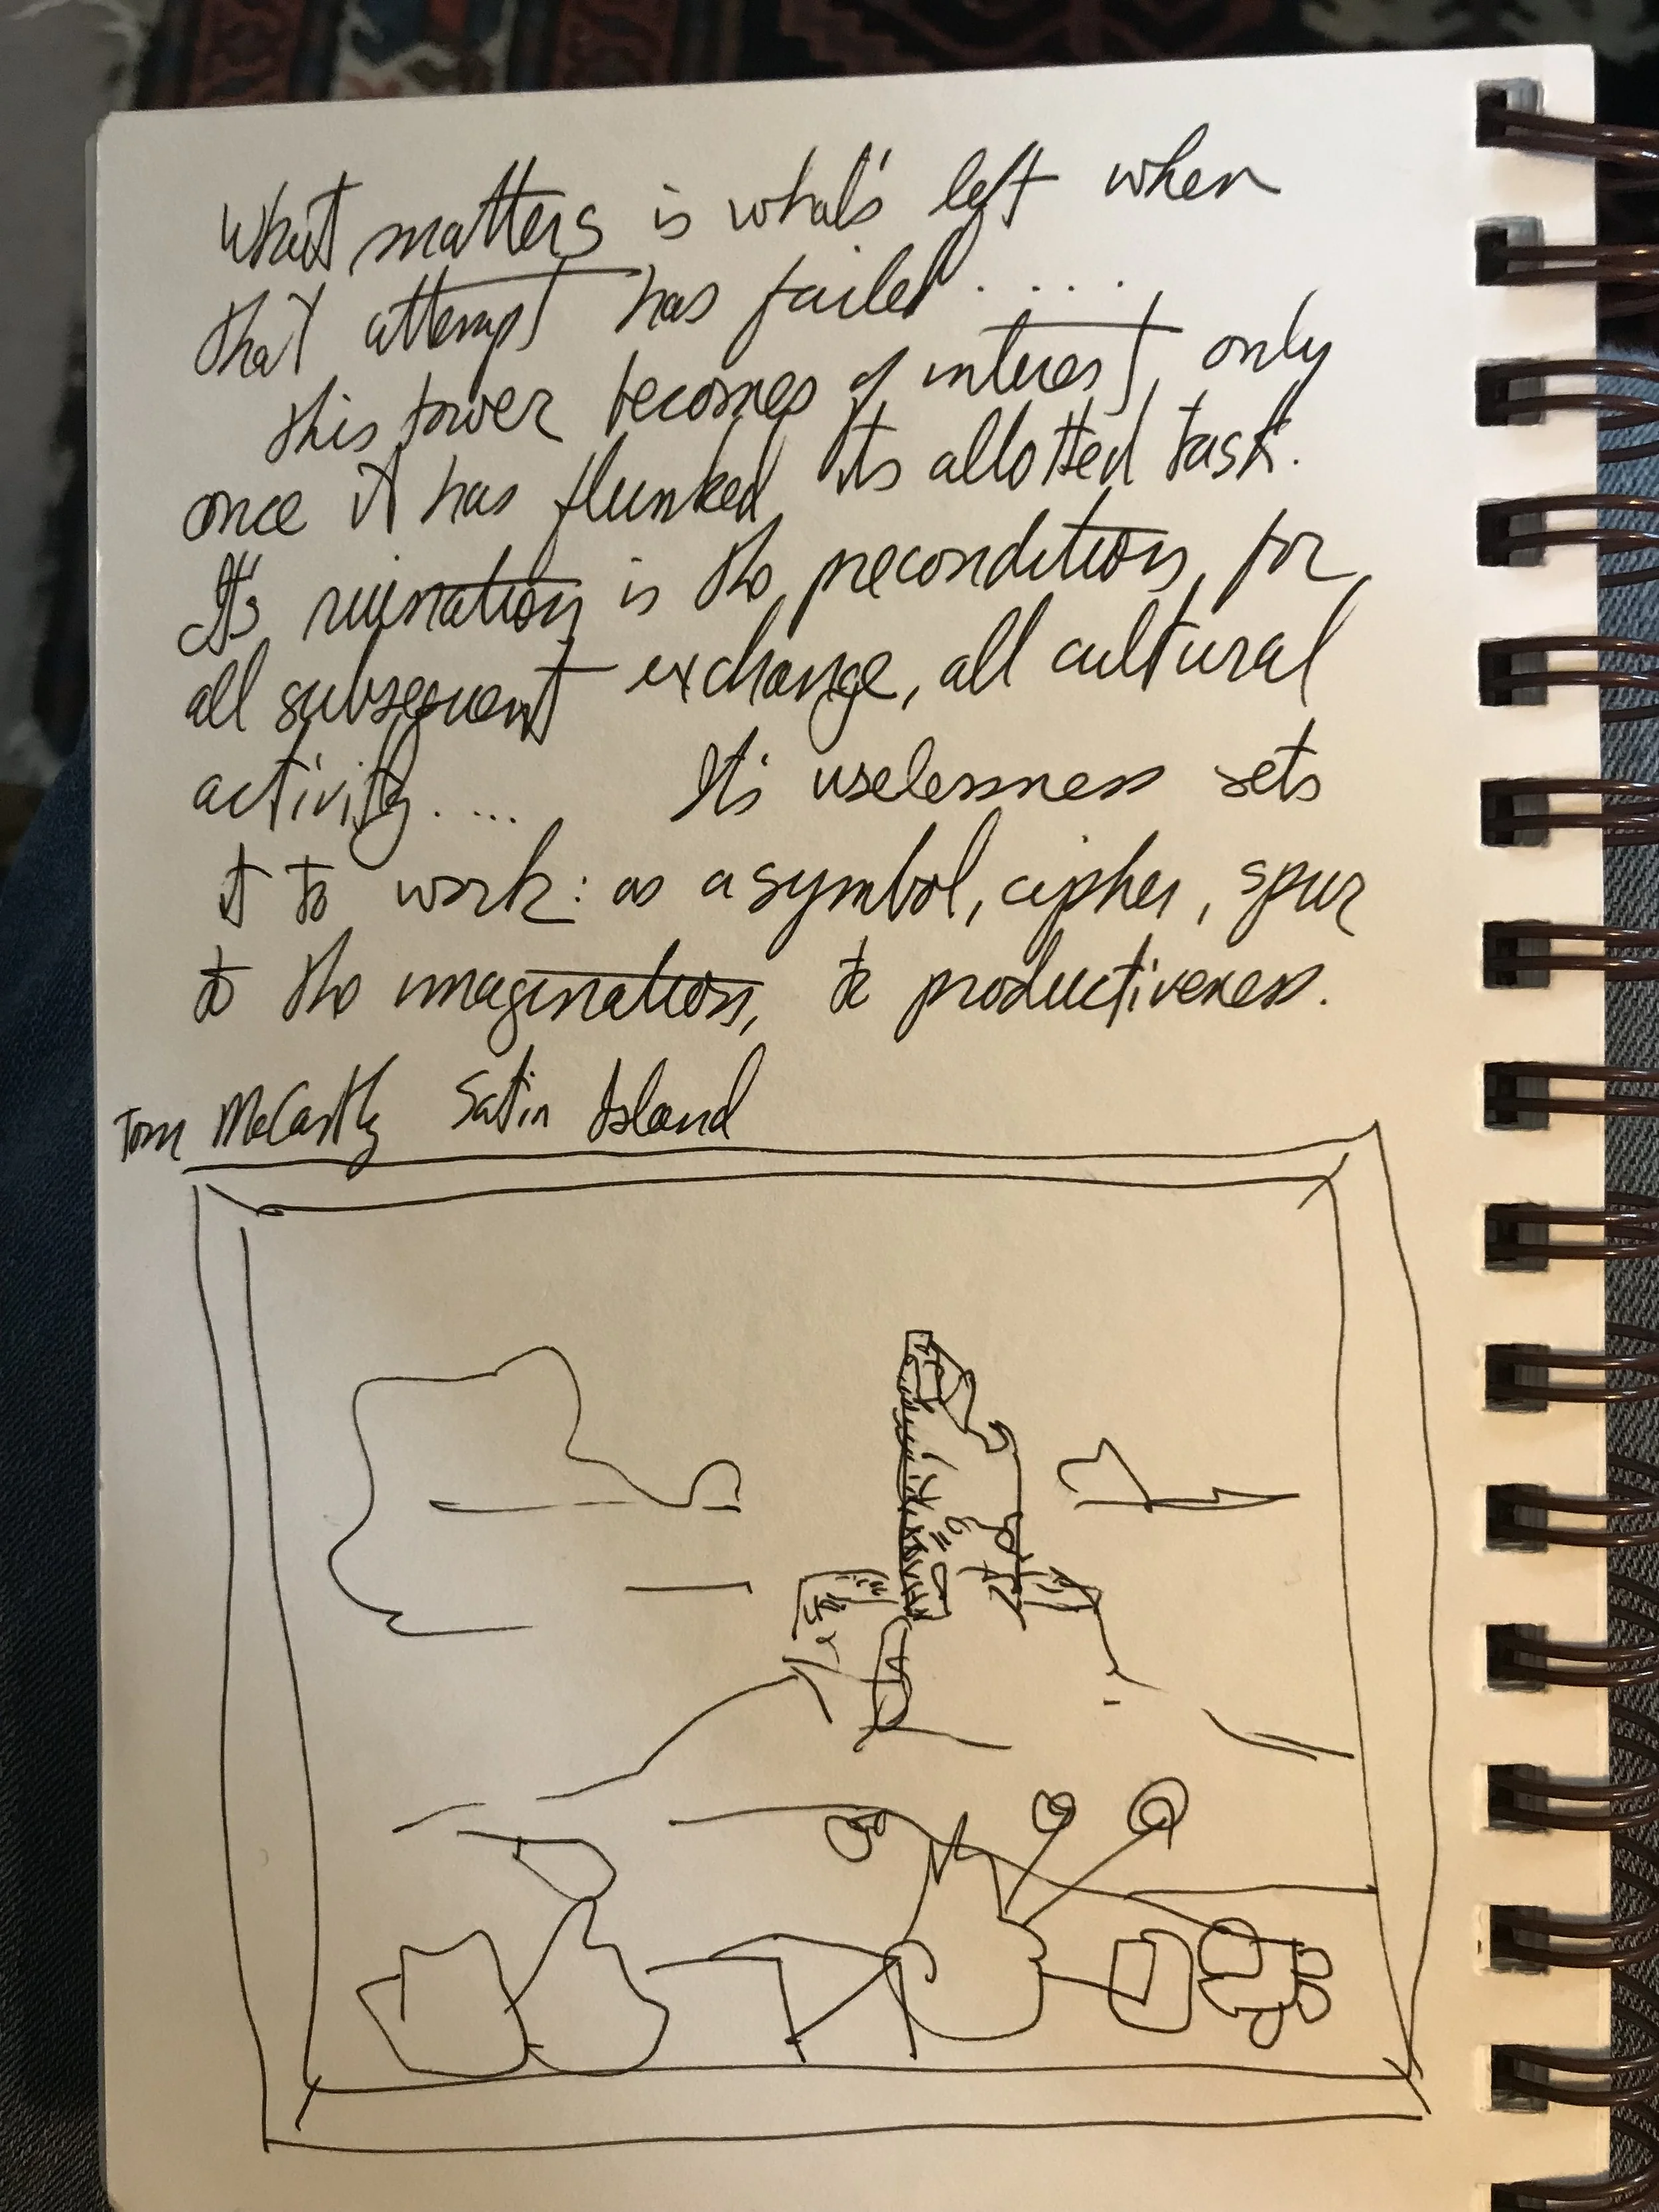 What matters is what's left when
that attempt has failed.....
this tower becomes of interest only
once it has flunked its allotted task.
It's ruination is the precondition for
all subsequent exchange, all cultural
activity.... It's uselessness sets
it to work: as a symbol, cipher, spur
to the imagination, to productiveness.
Tom McCarthy Satin Island